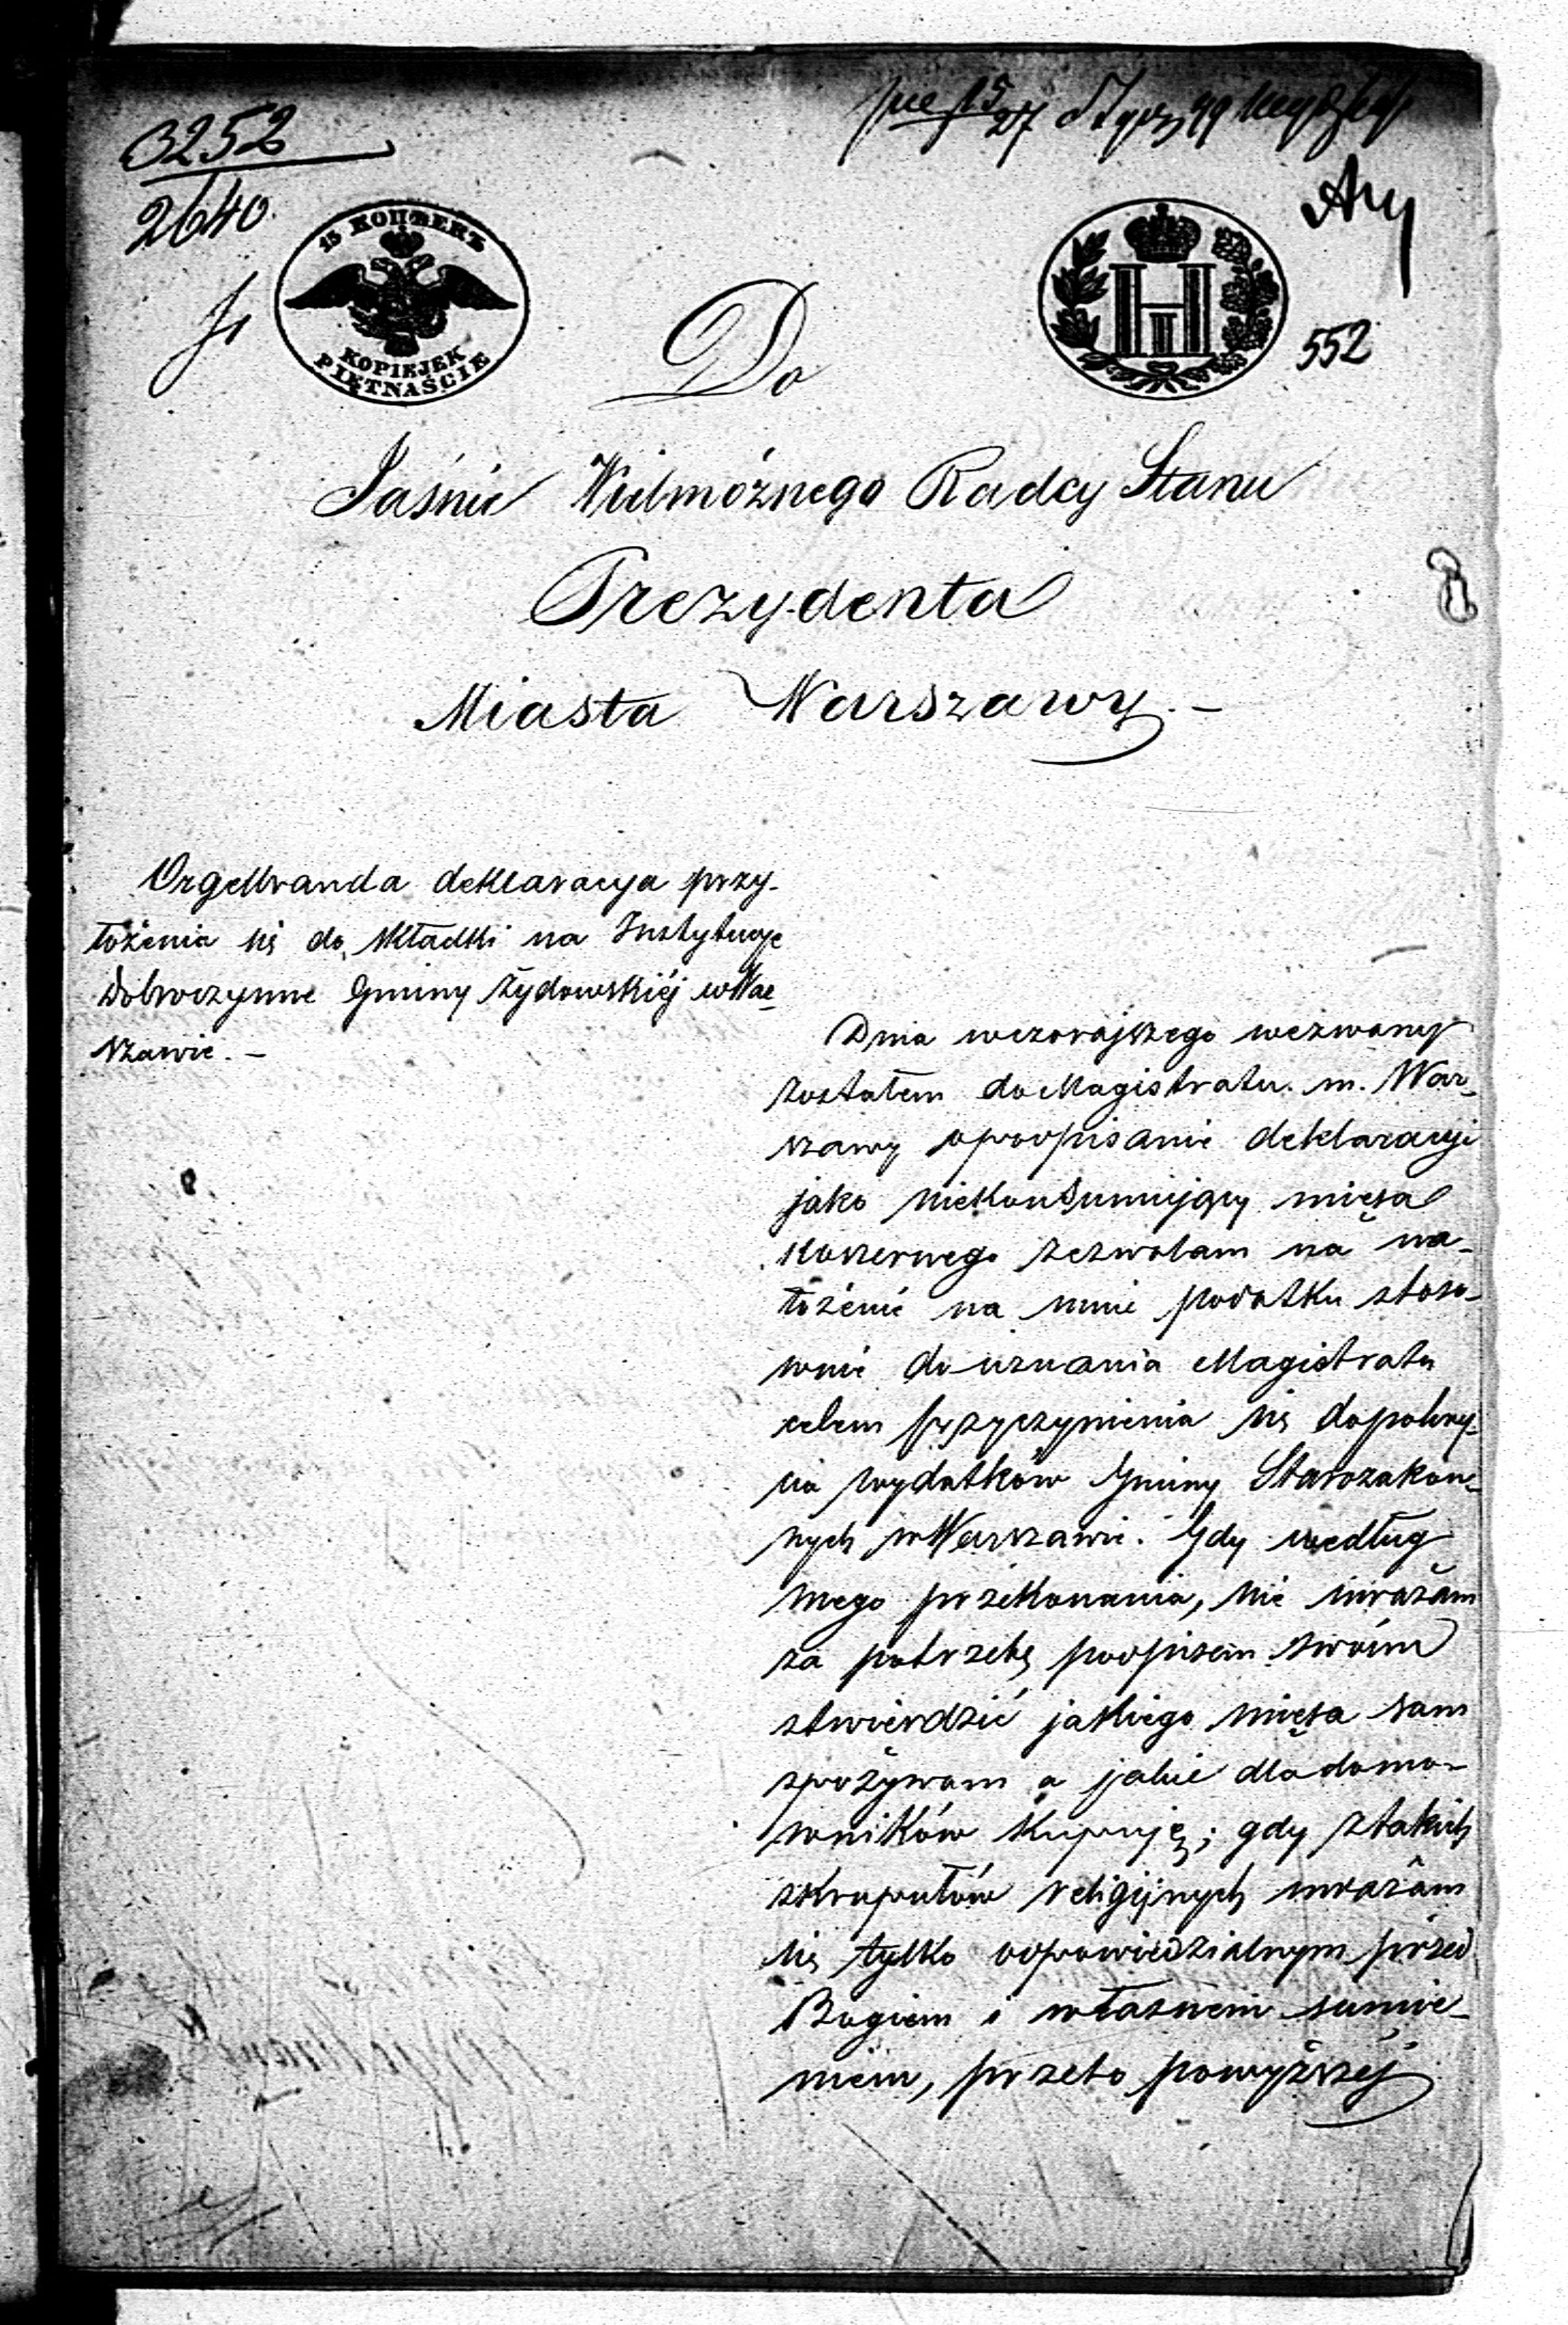 3252
2640
15 КОПѢЕКЪ
KOPIEJEK
PIĘTNAŚCIE
552
Do
Jaśnie Wielmożnego Radcy Stanu
Prezydenta
Miasta Warszawy. –
Orgelbranda deklaracya przy-
łożenia się do składki na Instytucye
Dobroczynne Gminy Żydowskiéj w War-
szawie. –
Dnia wczorajszego wezwany
zostałem do Magistratu m. War-
szawy o podpisanie deklaracyi
jako niekonsumujący mięsa
koszernego zezwalam na na-
łożenie na mnie podatku stoso-
wnie do uznania Magistratu
celem przyczynienia się do pokry-
cia wydatków Gminy Starozakon-
nych w Warszawie. Gdy według
mego przekonania, nie uważam
za potrzebę podpisem swoim
stwierdzić jakiego mięsa sam
spożywam a jakie dla domo-
wników kupuję; gdy z takich
skrupułów religijnych uważam
się tylko odpowiedzialnym przed
Bogiem i własnem sumie-
niem, przeto powyższéj